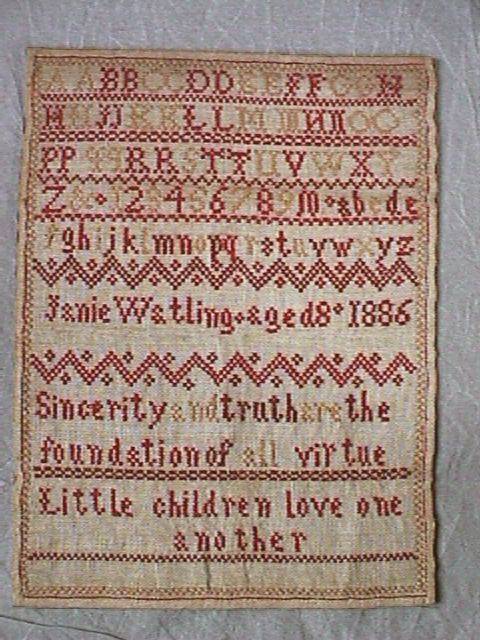 A A B B C C D D E E F F G G H
H I J K K L L M M N N O O
P P Q Q R R S T T U V W X Y
Z & 1 2 3 4 5 6 7 8 9 M a b c d e
f g h i j k l m n o p q r s t u v w x y z
Janie Watling aged 8 1886
Sincerity and truth are the
foundation of all virtue
Little children love one
another